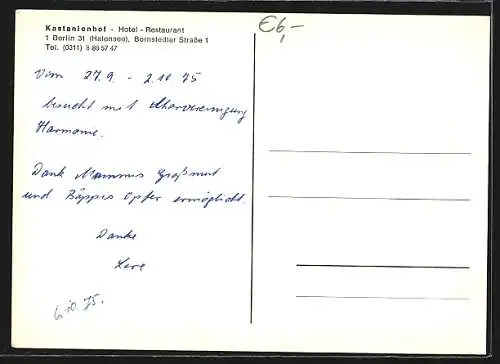 Kastanienhof - Hotel - Restaurant
1 Berlin 31 (Halensee), Bornstedter Straße 1
Tel. (0311) 8 86 57 47
€6,-
Vom 27.9. - 2.10 75
besucht mit Chorvereinigung
Harmonie.
Dank Mammis Großmut
und Bäppis Opfer ermöglicht.
Danke
6.10.75.